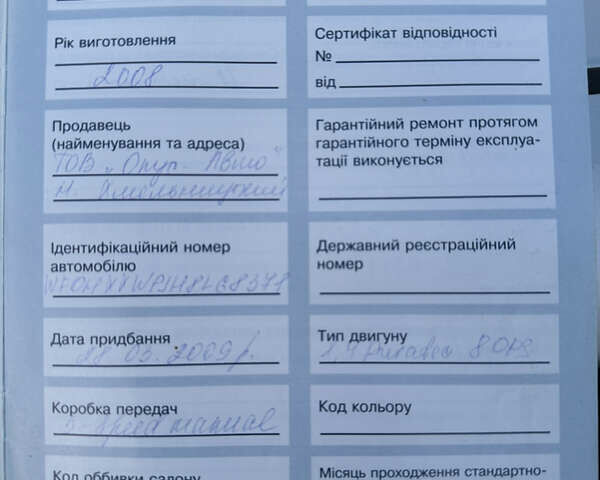 Рік виготовлення
2008
Сертифікат відповідності
№
від
Продавець
(найменування та адреса)
ТОВ „ Авто"
м. Хмельницький
Гарантійний ремонт протягом
гарантійного терміну експлуа-
тації виконується
Ідентифікаційний номер
автомобілю
Державний реєстраційний
номер
Дата придбання
28 03. 2009 р.
Тип двигуну
1,4
Коробка передач
5- speed manual
Код кольору
Код оббивки салону
Місяць проходження стандартно-